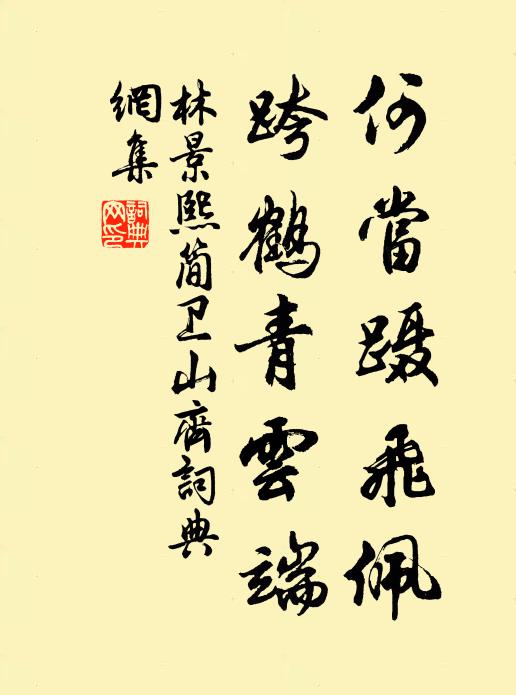 何當蹑飛佩
跨鶴青雲端
林景熙简卫山齊詞典
網集
詞典網印